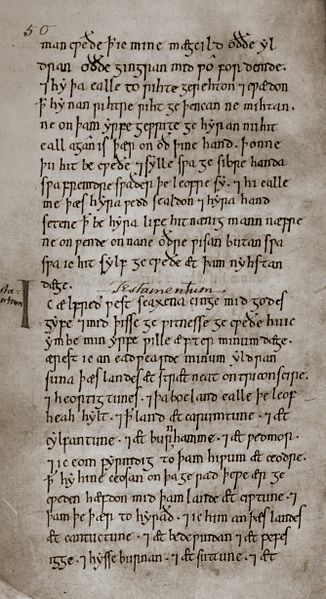 50
man cƿęðe þ ic mine mægcild oððe yl
dran oððe gingran mid ƿo fordemde.
⁊ hy þa ealle to rihte gerehton ⁊ cƿædon
þ hy nan rihtre riht geþencan ne mihtan.
ne on þam yrfe geƿrite gehyran nu hit
eall agan is þær on oð þine hand. þonne
þu hit becƿeðe ⁊ sylle sƿa gesibre handa
sƿa fremdre sƿaðer þe leofre sy. ⁊ hi ealle
me þæs hyra ƿedd sealdon ⁊ hyra hand
setene þ be hyra life hit nænig mann næfre
ne onƿende on nane oðre ƿisan butan sƿa
sƿa ic hit sylf gecƿeðe æt þam nyhstan
dæge. Testamentum.
Ic ælfred ƿestseaxena cinge mid godes
gyfe ⁊ mid þisse geƿitnesse gecƿeðe hu ic
ymbe min yrfe ƿille æfter minum dæge.
ærest ic an eadƿearde minum yldran
suna þæs landes æt strætneat on triconscire.
⁊ heortigtunes. ⁊ þa bocland ealle þe leof
heah hylt. ⁊ þ land æt carumtune. ⁊ æt
cylfantune. ⁊ æt burnhamme. ⁊ æt ƿedmor.
⁊ ic eom fyrmdig to þam hiƿum æt ceodre.
þ hy hine ceosan on þa gerad þe ƿe ær ge
cƿeden hæfdon mid þam lande æt ciƿtune. ⁊
þam þe þær to hyrað. ⁊ ic him an þæs landes
æt cantuctune. ⁊ æt bedeƿindan ⁊ æt pefes
igge. ⁊ hysseburnan. ⁊ æt suttune. ⁊ æt